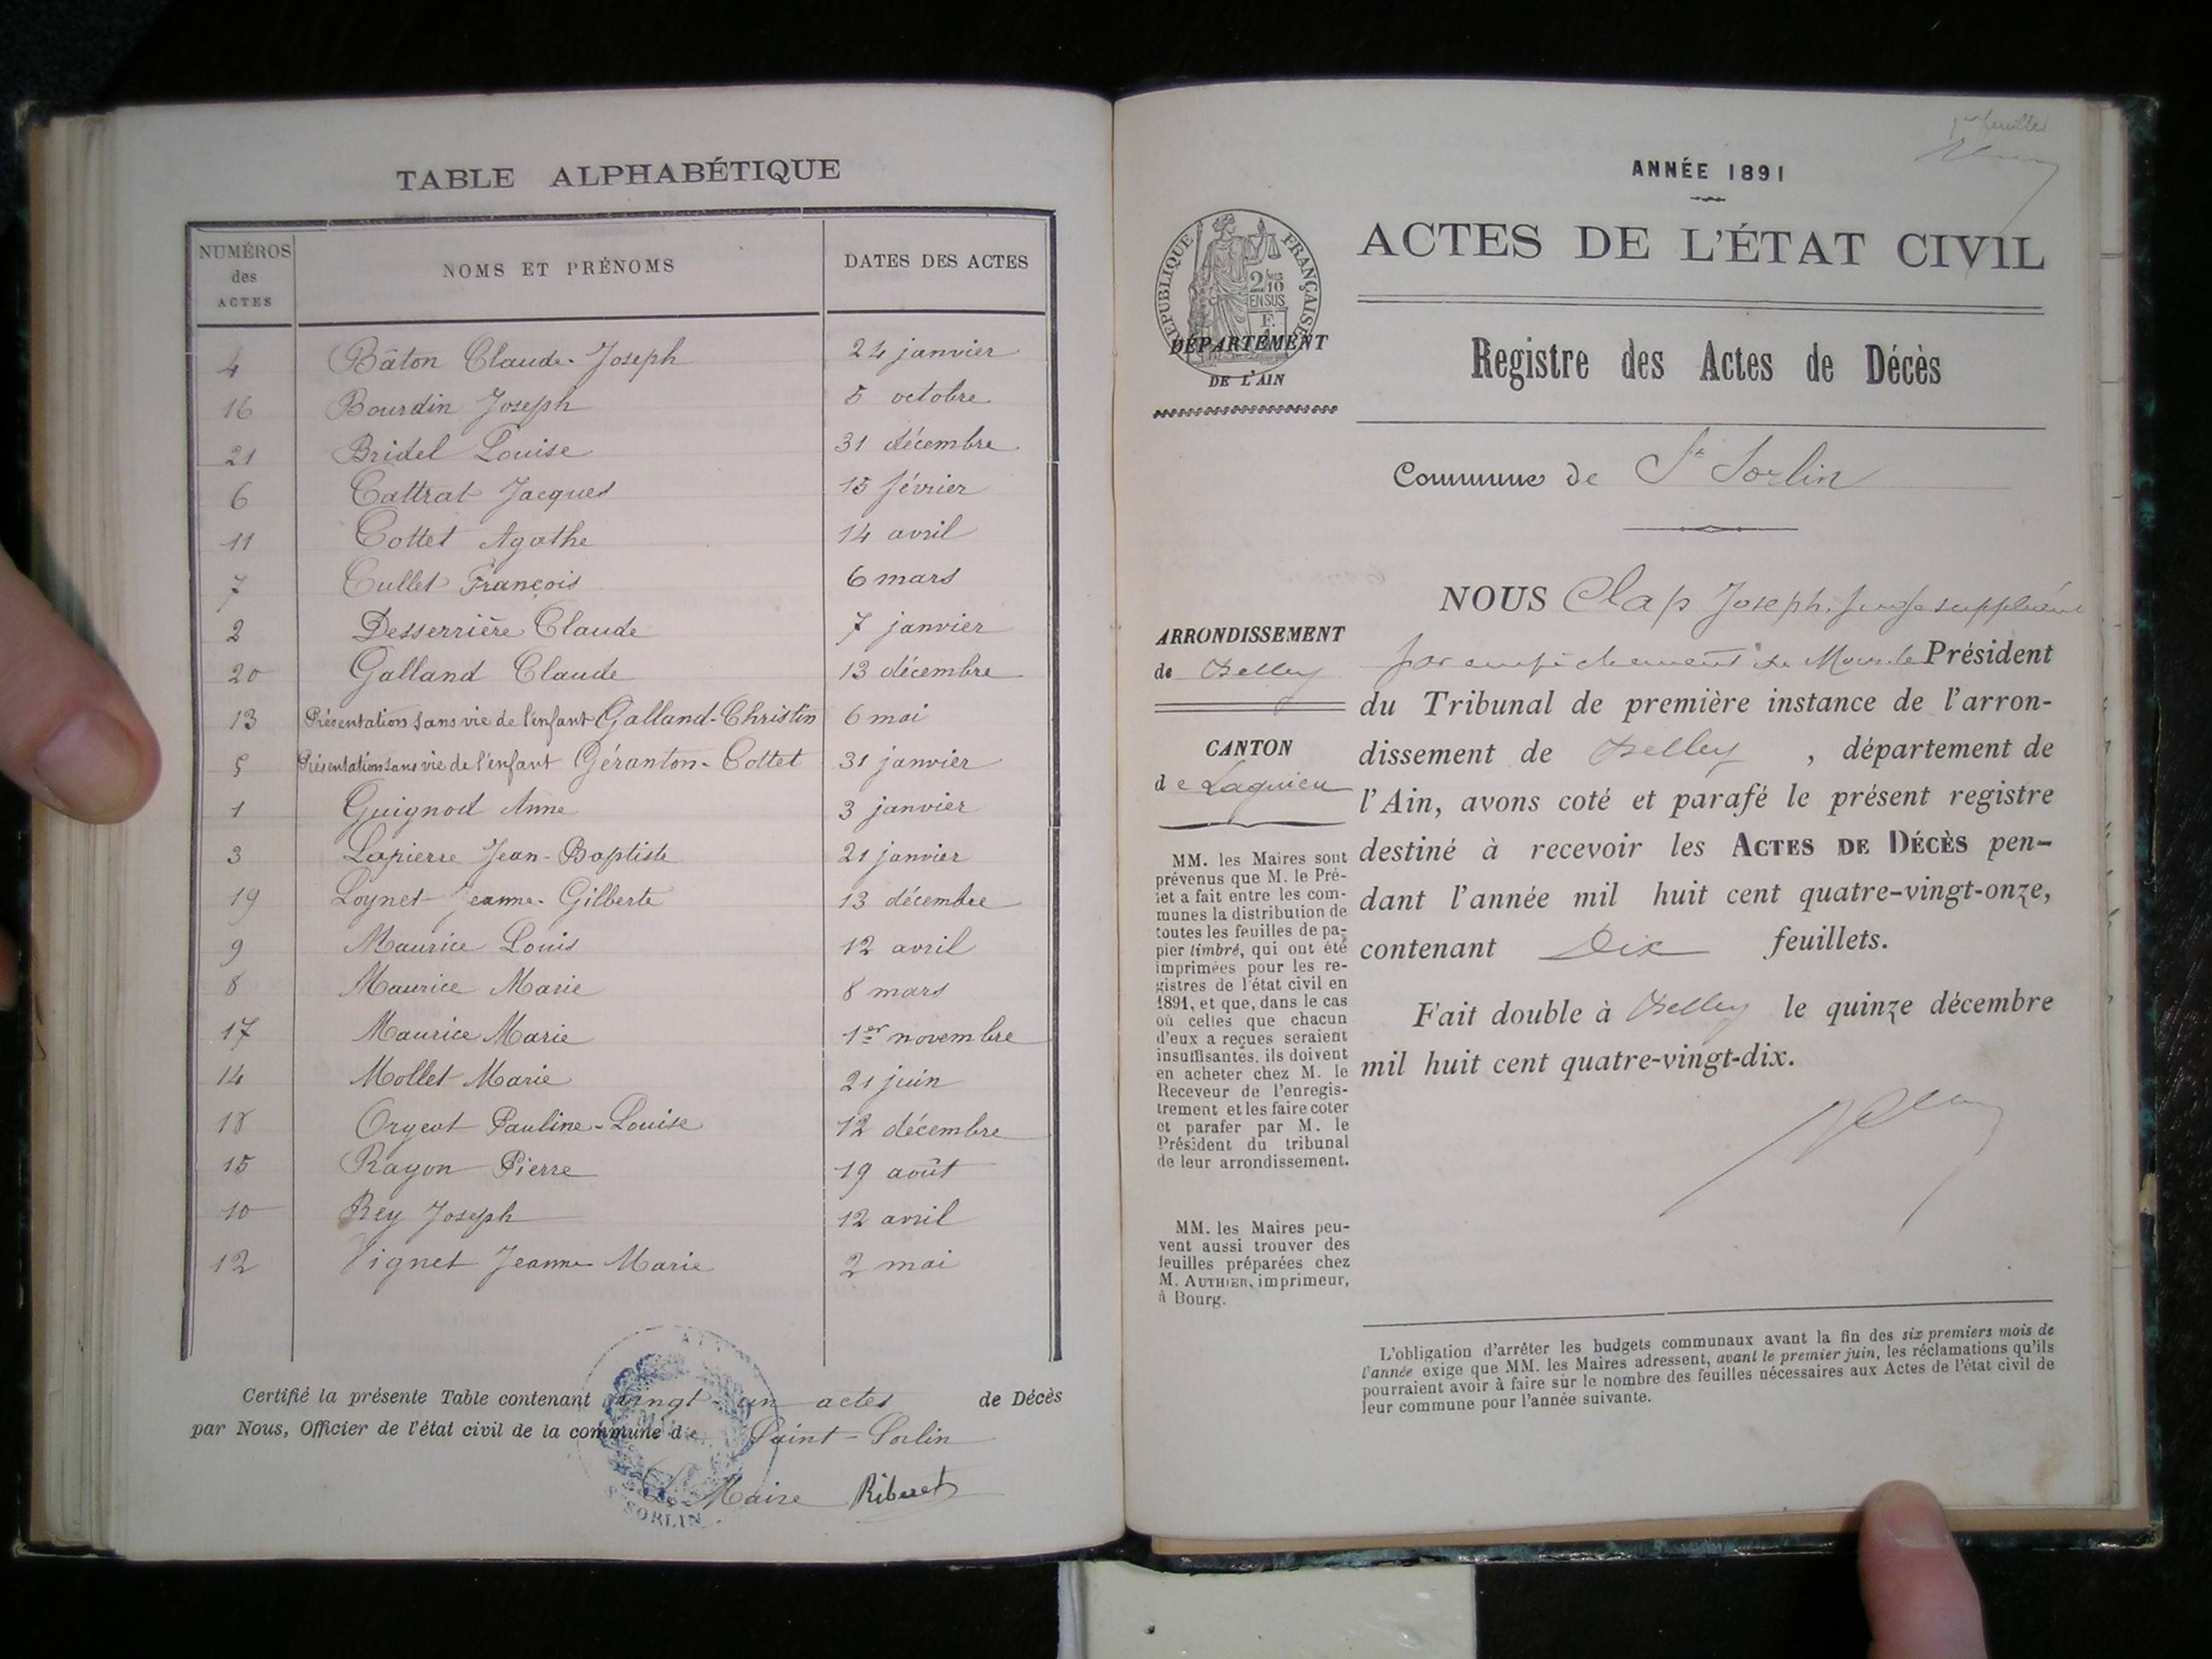 TABLE ALPHABÉTIQUE
NUMÉROS des ACTES
NOMS ET PRÉNOMS
DATES DES ACTES
4 Bâton Claude-Joseph 24 janvier
16 Bourdin Joseph 5 octobre
21 Bridel Louise 31 décembre
6 Cattrat Jacques 15 février
11 Cottet Agathe 14 avril
7 Cullet François 6 mars
2 Desserrière Claude 7 janvier
20 Galland Claude 13 décembre
13 Présentation sans vie de l'enfant Galland-Christin 6 mai
5 Présentation sans vie de l'enfant Géranton-Cottet 31 janvier
1 Guignod Anne 3 janvier
3 Lapierre Jean-Baptiste 21 janvier
19 Loynet Jeanne-Gilberte 13 décembre
9 Maurice Louis 12 avril
8 Maurice Marie 8 mars
17 Maurice Marie 1er novembre
14 Mollet Marie 21 juin
18 Orgeot Pauline-Louise 12 décembre
15 Rayon Pierre 19 août
10 Rey Joseph 12 avril
12 Vignet Jeanne Marie 2 mai
Certifié la présente Table contenant vingt-un actes de Décès
par Nous, Officier de l'état civil de la commune de Saint-Sorlin
Le Maire
St SORLIN
1er feuillet
ANNÉE 1891
RÉPUBLIQUE FRANÇAISE
2/10
EN SUS
ACTES DE L'ÉTAT CIVIL
DÉPARTEMENT
DE L'AIN
Registre des Actes de Décès
Commune de St Sorlin
ARRONDISSEMENT
de Belley
CANTON
de Lagnieu
MM. les Maires sont
prévenus que M. le Pré-
fet a fait entre les com-
munes la distribution de
toutes les feuilles de pa-
pier timbré, qui ont été
imprimées pour les re-
gistres de l'état civil en
1891, et que, dans le cas
où celles que chacun
d'eux a reçues seraient
insuffisantes, ils doivent
en acheter chez M. le
Receveur de l'enregis-
trement et les faire coter
et parafer par M. le
Président du tribunal
de leur arrondissement.
MM. les Maires peu-
vent aussi trouver des
feuilles préparées chez
M. AUTHIER, imprimeur,
à Bourg.
NOUS Clap Joseph, juge suppléant
par empêchement de Mons. le Président
du Tribunal de première instance de l'arron-
dissement de Belley, département de
l'Ain, avons coté et parafé le présent registre
destiné à recevoir les ACTES DE DÉCÈS pen-
dant l'année mil huit cent quatre-vingt-onze,
contenant Dix feuillets.
Fait double à Belley le quinze décembre
mil huit cent quatre-vingt-dix.
L'obligation d'arrêter les budgets communaux avant la fin des six premiers mois de
l'année exige que MM. les Maires adressent, avant le premier juin, les réclamations qu'ils
pourraient avoir à faire sur le nombre des feuilles nécessaires aux Actes de l'état civil de
leur commune pour l'année suivante.